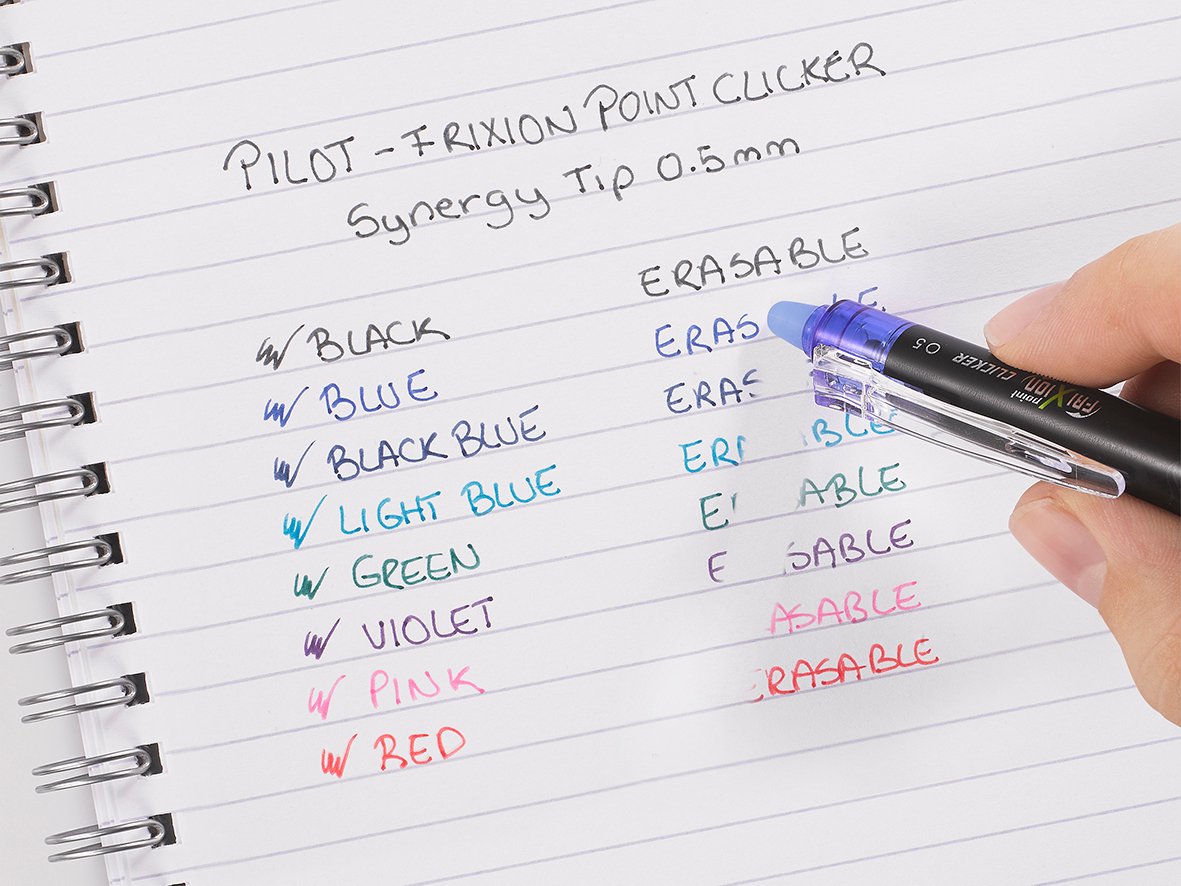 PILOT - FRIXION POINT CLICKER
Synergy Tip 0.5mm
ERASABLE
BLACK
ERAS LE
BLUE
ERAS
BLACK BLUE
ER ABLE
LIGHT BLUE
E ABLE
GREEN
E SABLE
VIOLET
ASABLE
PINK
ERASABLE
RED
FRIXION point CLICKER 0.5